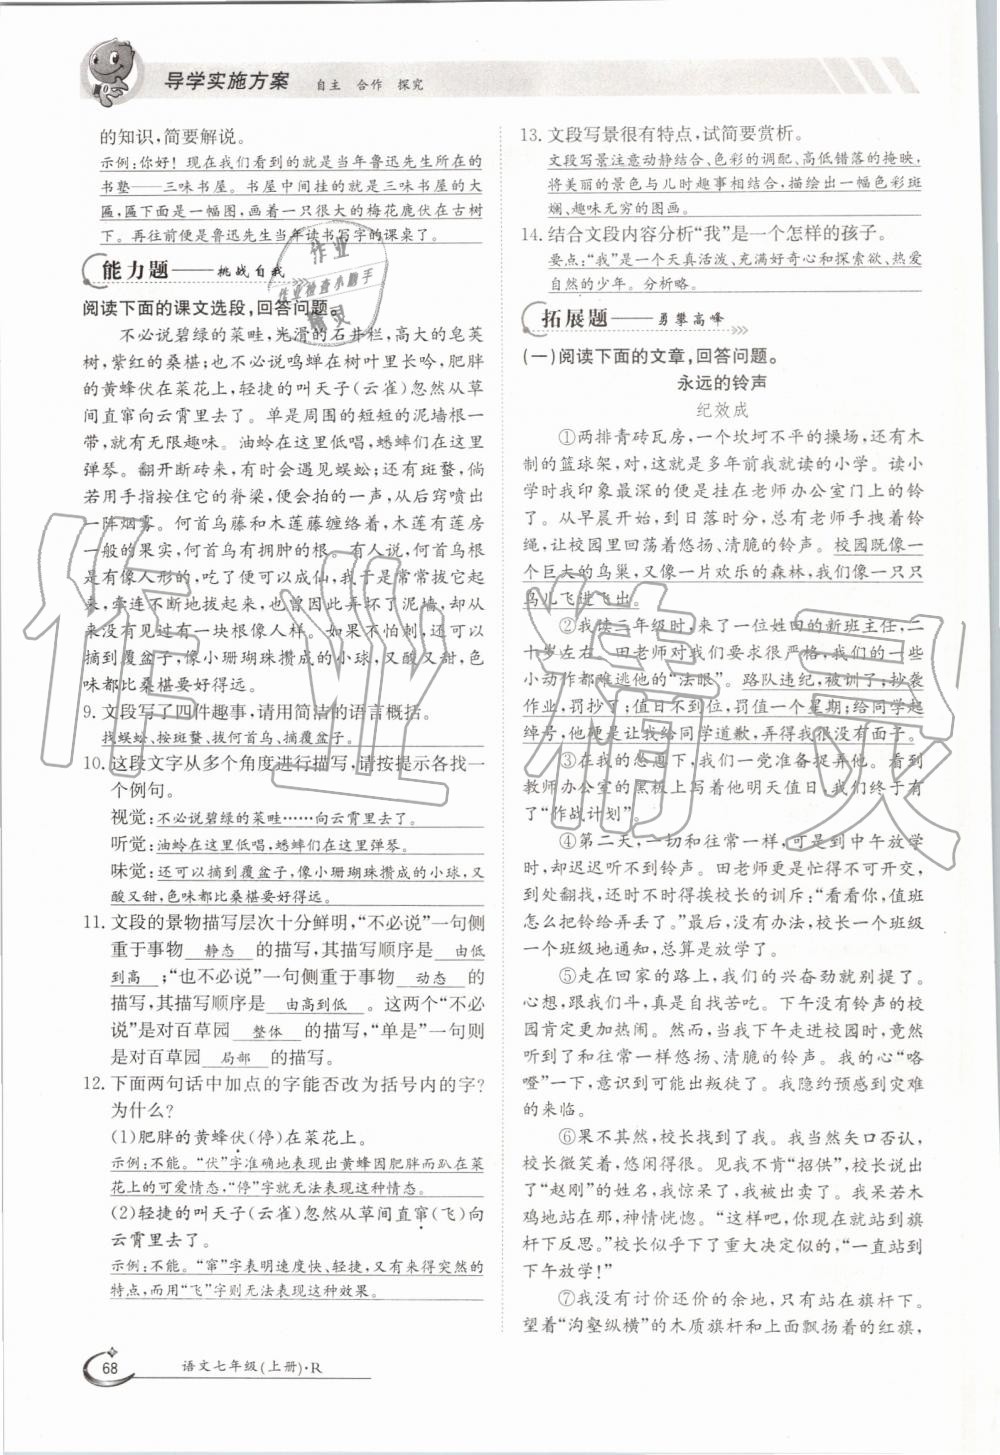 导学实施方案 自主 合作 探究
的知识,简要解说。
示例:你好!现在我们看到的就是当年鲁迅先生所在的
书塾——三味书屋。书屋中间挂的就是三味书屋的大
匾,匾下面是一幅图,画着一只很大的梅花鹿伏在古树
下。再往前便是鲁迅先生当年读书写字的课桌了。
能力题——挑战自我
阅读下面的课文选段,回答问题。
不必说碧绿的菜畦,光滑的石井栏,高大的皂荚
树,紫红的桑椹;也不必说鸣蝉在树叶里长吟,肥胖
的黄蜂伏在菜花上,轻捷的叫天子(云雀)忽然从草
间直窜向云霄里去了。单是周围的短短的泥墙根一
带,就有无限趣味。油蛉在这里低唱,蟋蟀们在这里
弹琴。翻开断砖来,有时会遇见蜈蚣;还有斑蝥,倘
若用手指按住它的脊梁,便会拍的一声,从后窍喷出
一阵烟雾。何首乌藤和木莲藤缠络着,木莲有莲房
一般的果实,何首乌有拥肿的根。有人说,何首乌根
是有像人形的,吃了便可以成仙,我于是常常拔它起
来,牵连不断地拔起来,也曾因此弄坏了泥墙,却从
来没有见过有一块根像人样。如果不怕刺,还可以
摘到覆盆子,像小珊瑚珠攒成的小球,又酸又甜,色
味都比桑椹要好得远。
9. 文段写了四件趣事,请用简洁的语言概括。
找蜈蚣、按斑蝥、拔何首乌、摘覆盆子。
10. 这段文字从多个角度进行描写,请按提示各找一
个例句。
视觉:不必说碧绿的菜畦……向云霄里去了。
听觉:油蛉在这里低唱,蟋蟀们在这里弹琴。
味觉:还可以摘到覆盆子,像小珊瑚珠攒成的小球,又
酸又甜,色味都比桑椹要好得远。
11. 文段的景物描写层次十分鲜明,“不必说”一句侧
重于事物 静态 的描写,其描写顺序是 由低
到高 ;“也不必说”一句侧重于事物 动态 的
描写,其描写顺序是 由高到低 。这两个“不必
说”是对百草园 整体 的描写,“单是”一句则
是对百草园 局部 的描写。
12. 下面两句话中加点的字能否改为括号内的字?
为什么?
(1)肥胖的黄蜂伏(停)在菜花上。
示例:不能。“伏”字准确地表现出黄蜂因肥胖而趴在菜
花上的可爱情态,“停”字就无法表现这种情态。
(2)轻捷的叫天子(云雀)忽然从草间直窜(飞)向
云霄里去了。
示例:不能。“窜”字表明速度快、轻捷,又有来得突然的
特点,而用“飞”字则无法表现这种效果。
13. 文段写景很有特点,试简要赏析。
文段写景注意动静结合、色彩的调配、高低错落的掩映,
将美丽的景色与儿时趣事相结合,描绘出一幅色彩斑
斓、趣味无穷的图画。
14. 结合文段内容分析“我”是一个怎样的孩子。
要点:“我”是一个天真活泼、充满好奇心和探索欲、热爱
自然的少年。分析略。
拓展题——勇攀高峰
(一)阅读下面的文章,回答问题。
永远的铃声
纪效成
①两排青砖瓦房,一个坎坷不平的操场,还有木
制的篮球架,对,这就是多年前我就读的小学。读小
学时我印象最深的便是挂在老师办公室门上的铃
了。从早晨开始,到日落时分,总有老师手拽着铃
绳,让校园里回荡着悠扬、清脆的铃声。校园既像一
个巨大的鸟巢,又像一片欢乐的森林,我们像一只只
鸟儿飞进飞出。
②我读三年级时,来了一位姓田的新班主任,二
十岁左右。田老师对我们要求很严格,我们的一些
小动作都难逃他的“法眼”。路队违纪,被训了;抄袭
作业,罚抄了;值日不到位,罚值一个星期;给同学起
绰号,他硬是让我给同学道歉,弄得我很没有面子。
③在我的怂恿下,我们一党准备捉弄他。看到
教师办公室的黑板上写着他明天值日,我们终于有
了“作战计划”。
④第二天,一切和往常一样,可是到中午放学
时,却迟迟听不到铃声。田老师更是忙得不可开交,
到处翻找,还时不时得挨校长的训斥:“看看你,值班
怎么把铃给弄丢了。”最后,没有办法,校长一个班级
一个班级地通知,总算是放学了。
⑤走在回家的路上,我们的兴奋劲就别提了。
心想,跟我们斗,真是自找苦吃。下午没有铃声的校
园肯定更加热闹。然而,当我下午走进校园时,竟然
听到了和往常一样悠扬、清脆的铃声。我的心“咯
噔”一下,意识到可能出叛徒了。我隐约预感到灾难
的来临。
⑥果不其然,校长找到了我。我当然矢口否认,
校长微笑着,悠闲得很。见我不肯“招供”,校长说出
了“赵刚”的姓名,我惊呆了,我被出卖了。我呆若木
鸡地站在那,神情恍惚。“这样吧,你现在就站到旗
杆下反思。”校长似乎下了重大决定似的,“一直站到
下午放学!”
⑦我没有讨价还价的余地,只有站在旗杆下。
望着“沟壑纵横”的木质旗杆和上面飘扬着的红旗,
68 语文七年级(上册)·R
作业精灵
作业
作业检查小助手
精灵